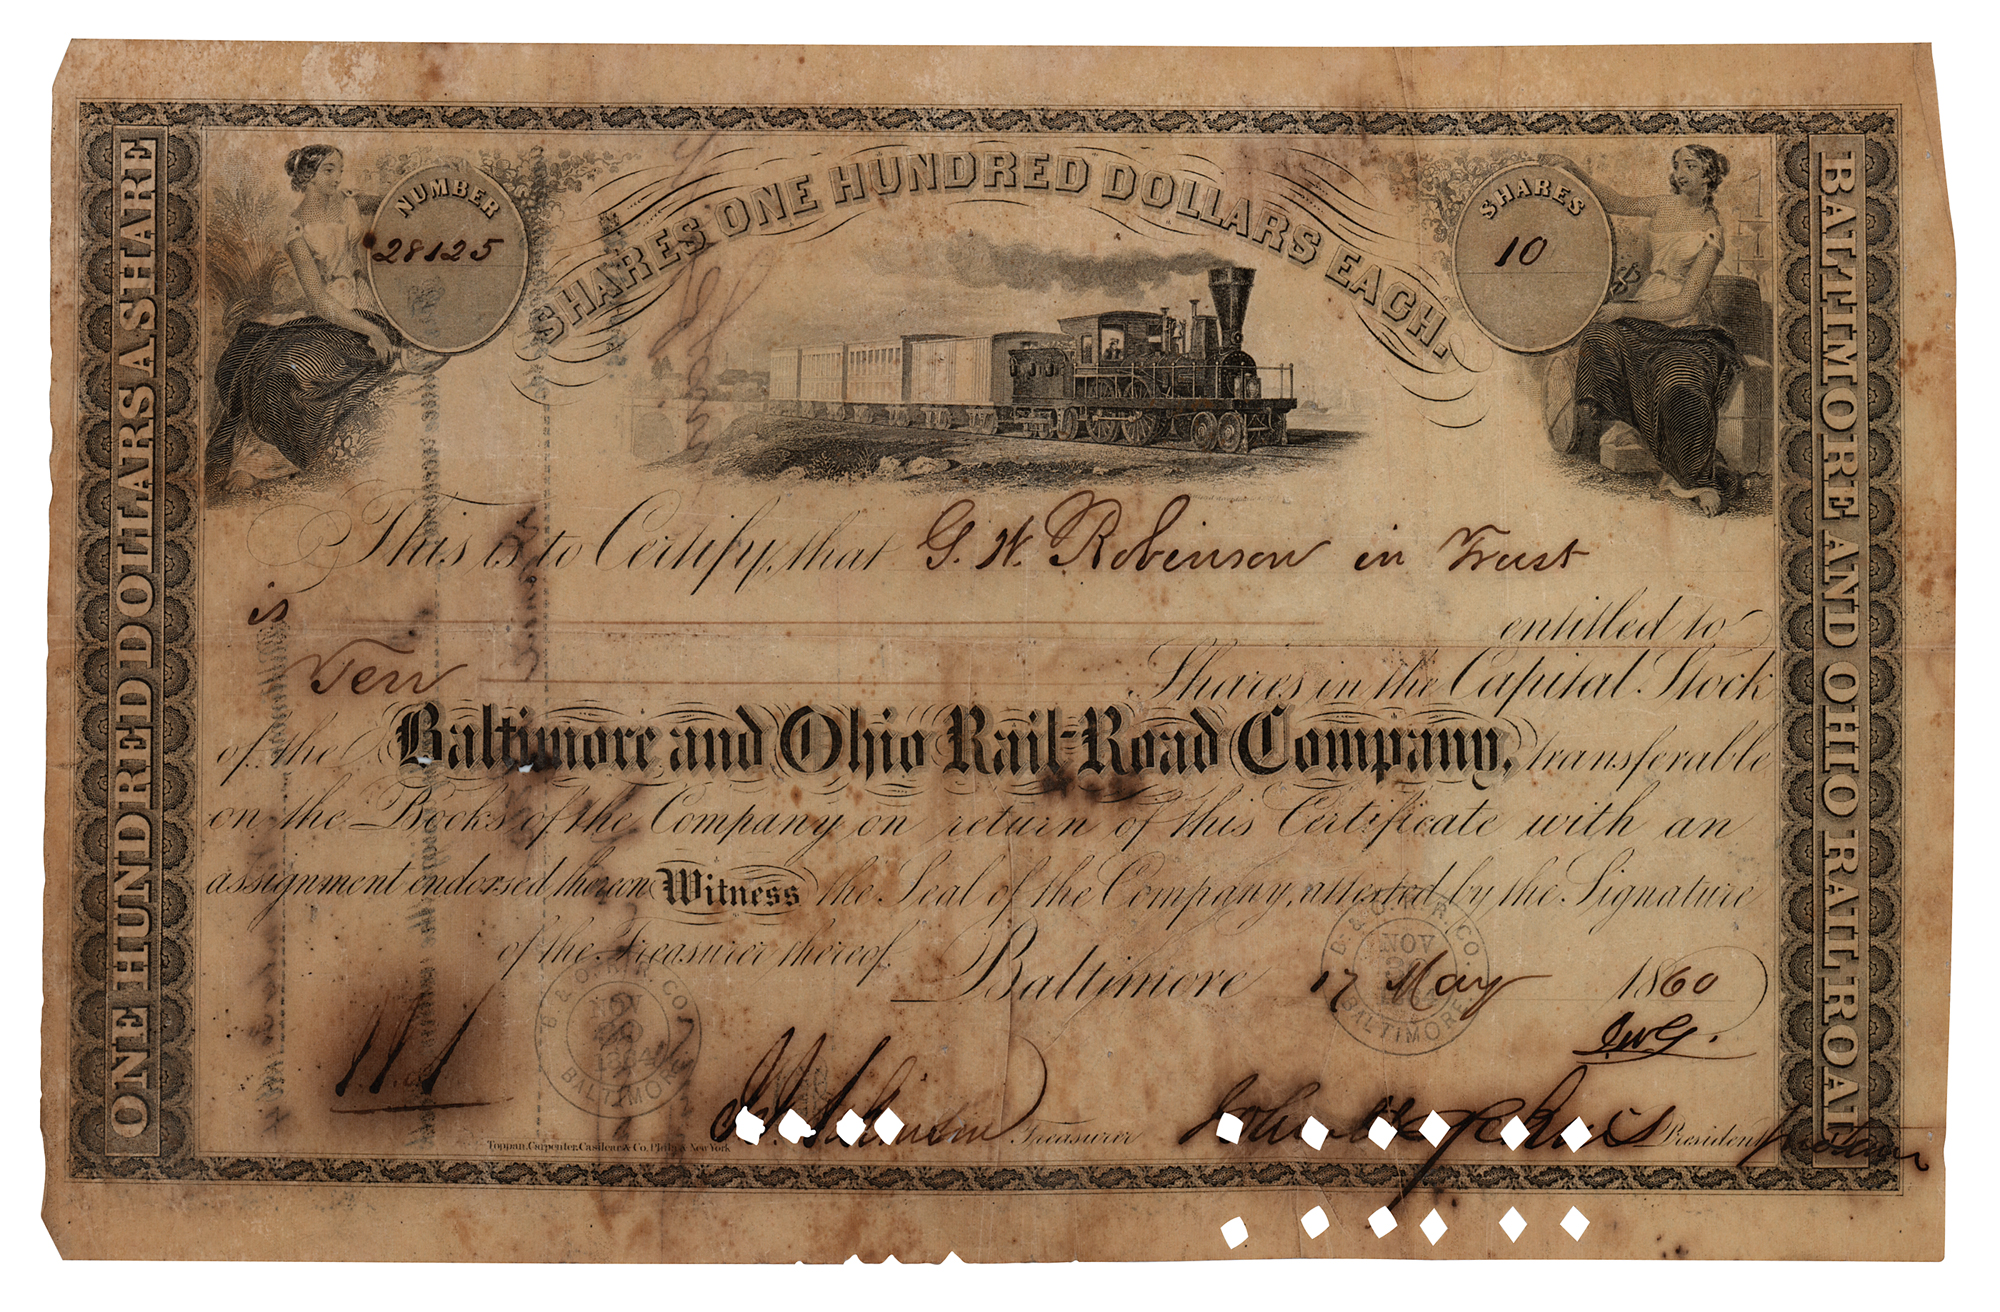 ONE HUNDRED DOLLARS A SHARE
NUMBER
28125
SHARES ONE HUNDRED DOLLARS EACH.
SHARES
10
This is to Certify, that G. W. Robinson in Trust
is entitled to
Ten Shares in the Capital Stock
of the Baltimore and Ohio Rail-Road Company, transferable
on the Books of the Company on return of this Certificate with an
assignment endorsed thereon Witness the Seal of the Company, attested by the Signature
of the Treasurer thereof.
Baltimore 17 May 1860
B. & O. R. R. CO.
BALTIMORE
B. & O. R. R. CO.
NOV
BALTIMORE
Treasurer
President
protem
Toppan, Carpenter, Casilear & Co. Phila. & New York
BALTIMORE AND OHIO RAIL ROAD